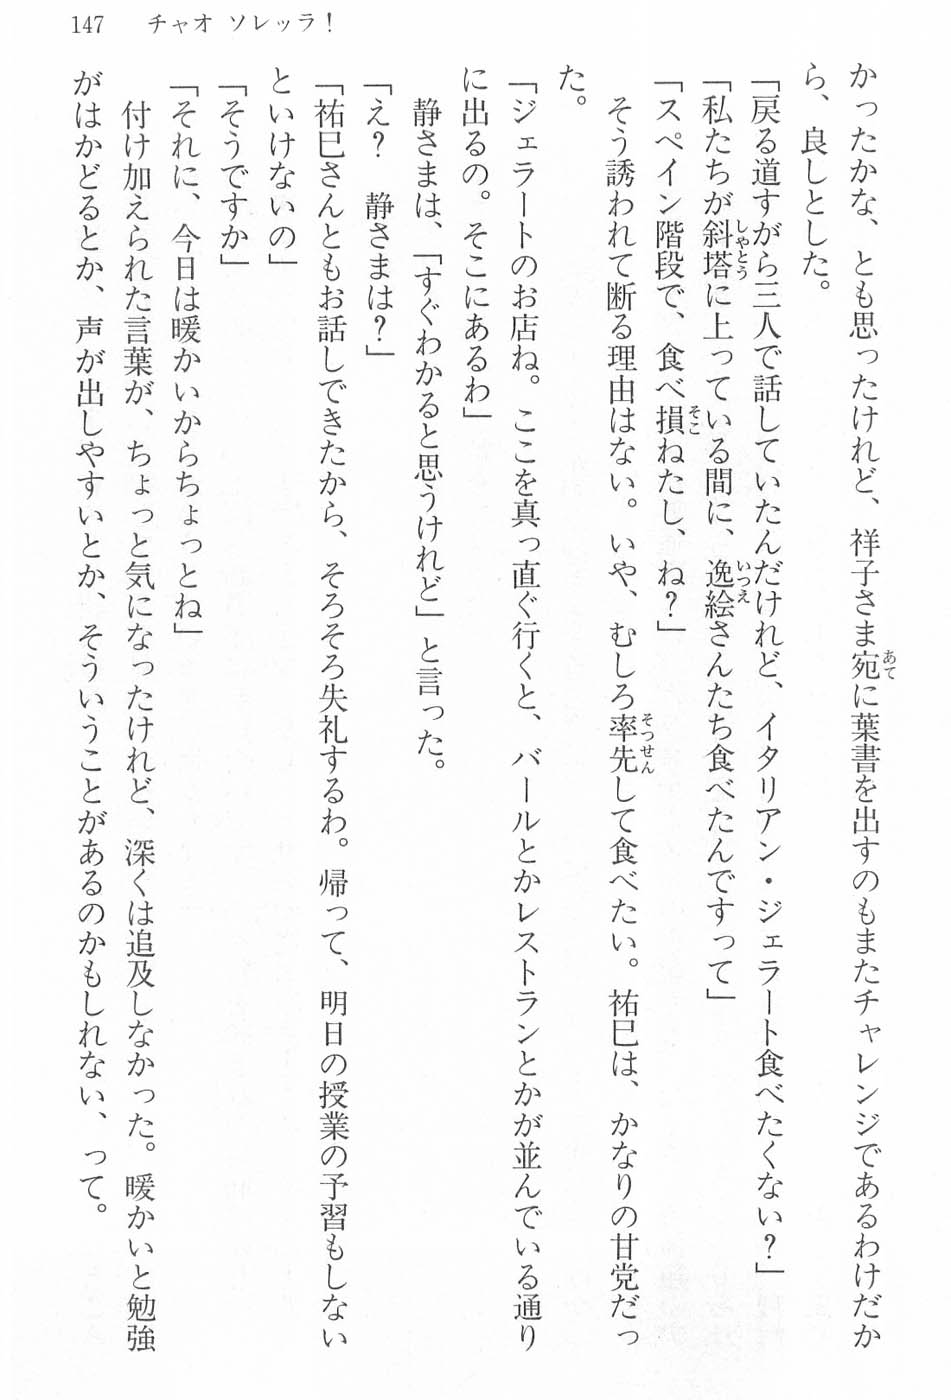 147　チャオ ソレッラ！
かったかな、とも思ったけれど、祥子さま宛に葉書を出すのもまたチャレンジであるわけだか
ら、良しとした。
「戻る道すがら三人で話していたんだけれど、イタリアン・ジェラート食べたくない？」
「私たちが斜塔に上っている間に、逸絵さんたち食べたんですって」
「スペイン階段で、食べ損ねたし、ね？」
　そう誘われて断る理由はない。いや、むしろ率先して食べたい。祐巳は、かなりの甘党だっ
た。
「ジェラートのお店ね。ここを真っ直ぐ行くと、バールとかレストランとかが並んでいる通り
に出るの。そこにあるわ」
　静さまは、「すぐわかると思うけれど」と言った。
「え？　静さまは？」
「祐巳さんともお話しできたから、そろそろ失礼するわ。帰って、明日の授業の予習もしない
といけないの」
「そうですか」
「それに、今日は暖かいからちょっとね」
　付け加えられた言葉が、ちょっと気になったけれど、深くは追及しなかった。暖かいと勉強
がはかどるとか、声が出しやすいとか、そういうことがあるのかもしれない、って。